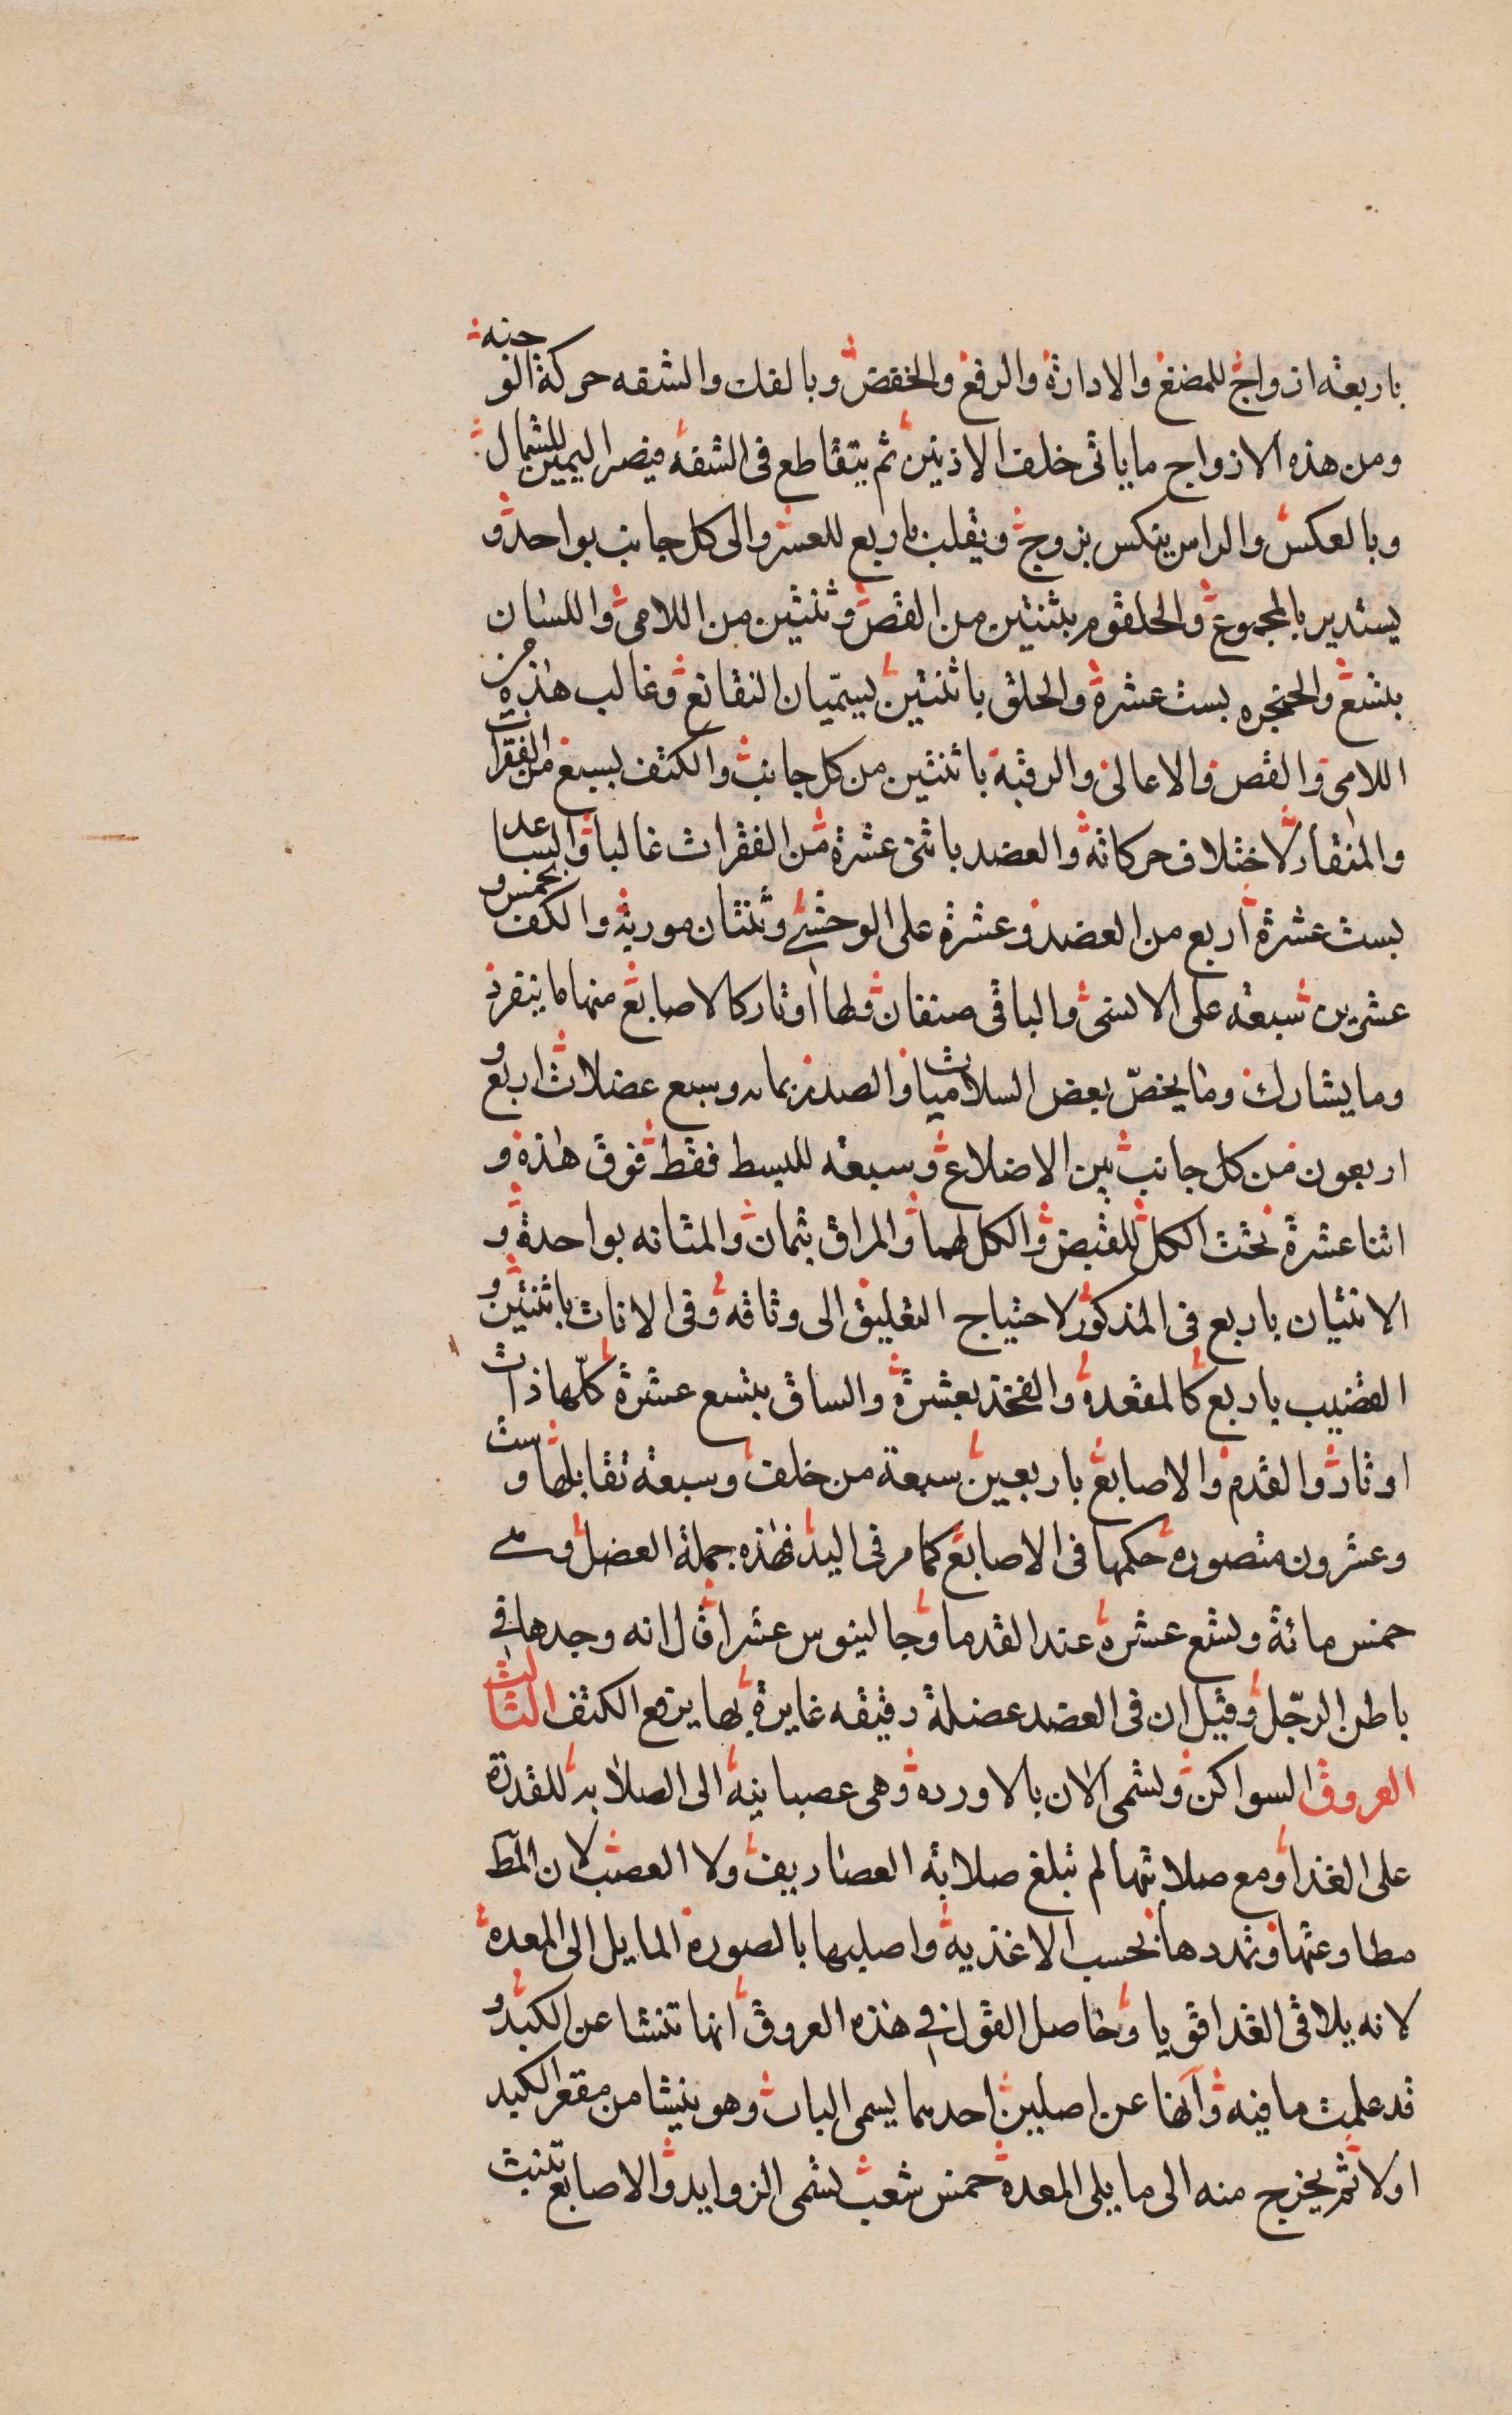 باربعة ازواج للمضغ والادارة والرفع والخفض وبالفك والشفه حركة الوجنه
ومن هذه الازواج ما ياتى خلف الاذنين ثم يتقاطع فى الشفه فيصر اليمين للشمال
وبالعكس والراس ينكس بزوج ويقلب باربع للعسر والى كل جانب بواحد و
يستدير بالمجموع والحلقوم بثنتين من القص وثنتين من اللامى واللسان
بتسع والحنجره بست عشرة والحلق باثنتين يسمّيان النقانع وغالب هذه من
اللامى والقص والاعالى والرقبة باثنتين من كل جانب والكتف بسبع من الفقرات
والمنقار لاختلاف حركاته والعضد باثنى عشرة من الفقرات غالبا والساعد
بست عشرة اربع من العضد وعشرة على الوحشى وثنتان موربة والكف بخمس و
عشرين سبعة على الانسى والباقى صنفان ولها اوتار كالاصابع منها ما ينفرد
وما يشارك وما يخصّ بعض السلاميات والصدر بمائه وسبع عضلات اربع و
اربعون من كل جانب بين الاضلاع وسبعة للبسط فقط فوق هذه و
اثنا عشرة تحت الكل للقبض والكل لهما والمراق بثمان والمثانه بواحدة و
الانثيان باربع فى المذكور لاحتياج التعليق الى وثاقه وفى الاناث باثنتين و
القضيب باربع كالمقعدة والفخذ بعشرة والساق بتسع عشرة كلّها ذات
اوتار والقدم والاصابع باربعين سبعة من خلف وسبعة تقابلها وست
وعشرون متصوره حكمها فى الاصابع كما مر فى اليد فهذه جملة العضل وهى
خمس مائة وتسع عشرة عند القدما وجالينوس عشرا قال انه وجدها فى
باطن الرّجل وقيل ان فى العضد عضلة رقيقه غايرة بها يرفع الكتف الثالث
العروق السواكن وتسمى الان بالاورده وهى عصبانية الى الصلابة للقدرة
على الغذا ومع صلابتها لم تبلغ صلابة الغضاريف ولا العصب لان المط
مطاوعتها وتمددها بحسب الاغذية واصلبها بالصورة المايل الى المعدة
لانه يلاقى الغذا قويا وحاصل القول فى هذه العروق انها تنشا عن الكبد و
قد علمت ما فيه وانها عن اصلين احدهما يسمى الباب وهو ينشا من مقعر الكبد
اولا ثم يخرج منه الى ما يلى المعدة خمس شعب تسمى الزوايد والاصابع تنبت